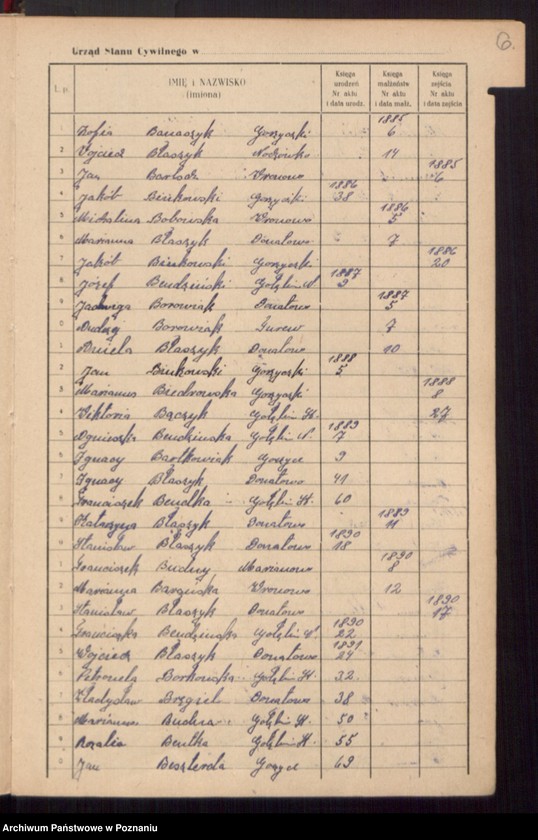 6.
Urząd Stanu Cywilnego w
L. p.
IMIĘ i NAZWISKO
(imiona)
Księga urodzeń Nr aktu i data urodz.
Księga małżeństw Nr aktu i data małż.
Księga zejścia Nr aktu i data zejścia
1885
1 Zofia Banaszyk Gorzyczki 6
2 Wojciech Błaszyk 14
1885
3 Jan Wronowo 6
1886
4 Jakób Bieńkowski Gorzyczki 38
1886
5 Michalina Bobowska Wronowo 5
6 Marianna Błaszyk Donatowo 7
1886
7 Jakób Bieńkowski Gorzyczki 20
1887
8 Józef Budziński Gołębin N. 9
1887
9 Jadwiga Borowiak Donatowo 5
0 Borowiak Gurew 7
1 Aniela Błaszyk Donatowo 10
1888
2 Jan Gorzyczki 5
1888
3 Marianna Biedrowska Gorzyczki 8
4 Wiktoria Bączyk Gołębin St. 27
1889
5 Agnieszka Budzinska Gołębin N. 7
6 Ignacy Bartkowiak Gorzyce 9
7 Ignacy Błaszyk Donatowo 41
8 Franciszek Bendka Gołębin St. 60
1889
9 Katarzyna Błaszyk Donatowo 11
1890
0 Stanisław Błaszyk Donatowo 18
1890
1 Franciszek Budny Marianowo 8
2 Marianna Wronowo 12
1890
3 Stanisław Błaszyk Donatowo 17
1890
4 Franciszka Budzinska Gołębin N. 22
1891
5 Wojciech Błaszyk Donatowo 24
6 Petronela Borkowska Gołębin St. 32
7 Władysław Donatowo 38
8 Marianna Budna Gołębin St. 50
9 Rozalia Bentka Gołębin St. 55
0 Jan Beszterda Gorzyce 69
Archiwum Państwowe w Poznaniu